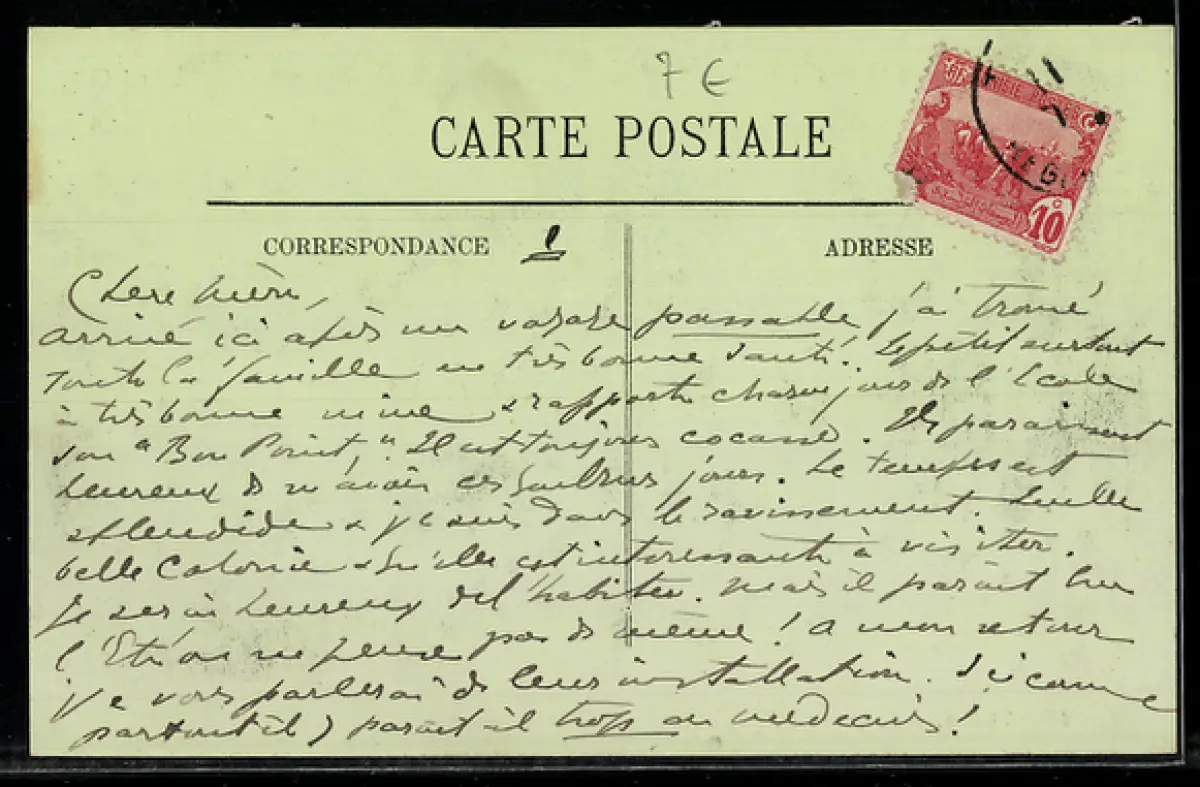 7 €
CARTE POSTALE
10
CORRESPONDANCE 1 ADRESSE
Chère Mère,
arrivé ici après un voyage passable j'ai trouvé
toute la famille en très bonne santé. Le petit surtout
à très bonne mine & rapporte chaque jour de l'Ecole
son "Bon Point," Il est toujours cocasse. Ils paraissent
heureux de m'avoir ces jours. Le temps est
splendide & je suis dans le ravissement. Quelle
belle Colonie & qu'elle est intéressante à visiter.
Je serais heureux de l'habiter. Mais il parait que
l'Eté on ne pense pas de même ! A mon retour
je vous parlerai de leur installation. Ici comme
partout il y parait-il trop de médecins !